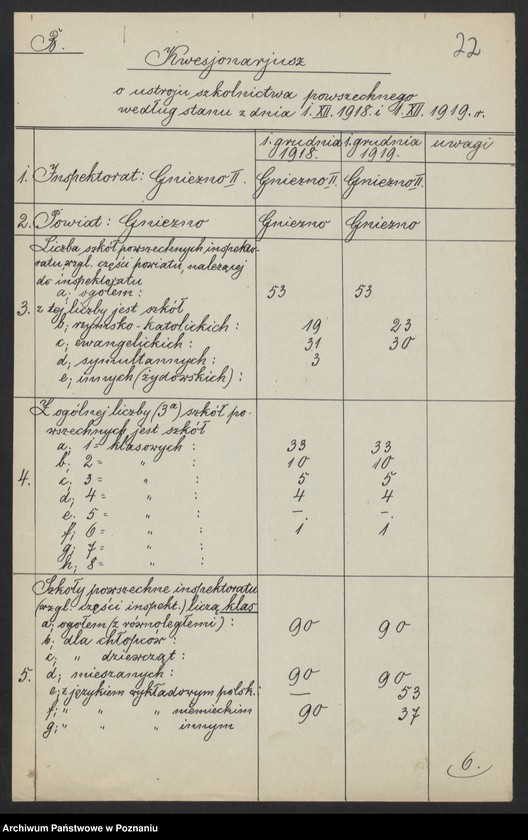 B.
22
Kwesjonarjusz
o ustroju szkolnictwa powszechnego
według stanu z dnia 1. XII. 1918. i 1. XII. 1919. r.
1. grudnia 1918. 1. grudnia 1919. uwagi
1. Inspektorat: Gniezno II. Gniezno II. Gniezno II.
2. Powiat: Gniezno Gniezno Gniezno
Liczba szkół powszechnych inspekto-
ratu, wzgl. części powiatu, należącej
do inspektoratu
a; ogółem: 53 53
3. z tej liczby jest szkół
b; rzymsko-katolickich: 19 23
c; ewangelickich: 31 30
d; symultannych: 3
e; innych (żydowskich):
Z ogólnej liczby (3a) szkół po-
wszechnych jest szkół
a; 1= klasowych : 33 33
b; 2= " : 10 10
4. c; 3= " : 5 5
d; 4= " : 4 4
e. 5= " : –. –.
f; 6= " : 1 1
g; 7= " :
h; 8= " :
Szkoły powszechne inspektoratu
(wzgl. części inspekt.) liczą klas
a; ogółem (z równoległemi): 90 90
b; dla chłopców:
c; " dziewcząt:
5. d; mieszanych: 90 90
e; z językiem wykładowym polsk.: — 53
f; " " " niemieckim 90 37
g; " " " innym
6.
Archiwum Państwowe w Poznaniu